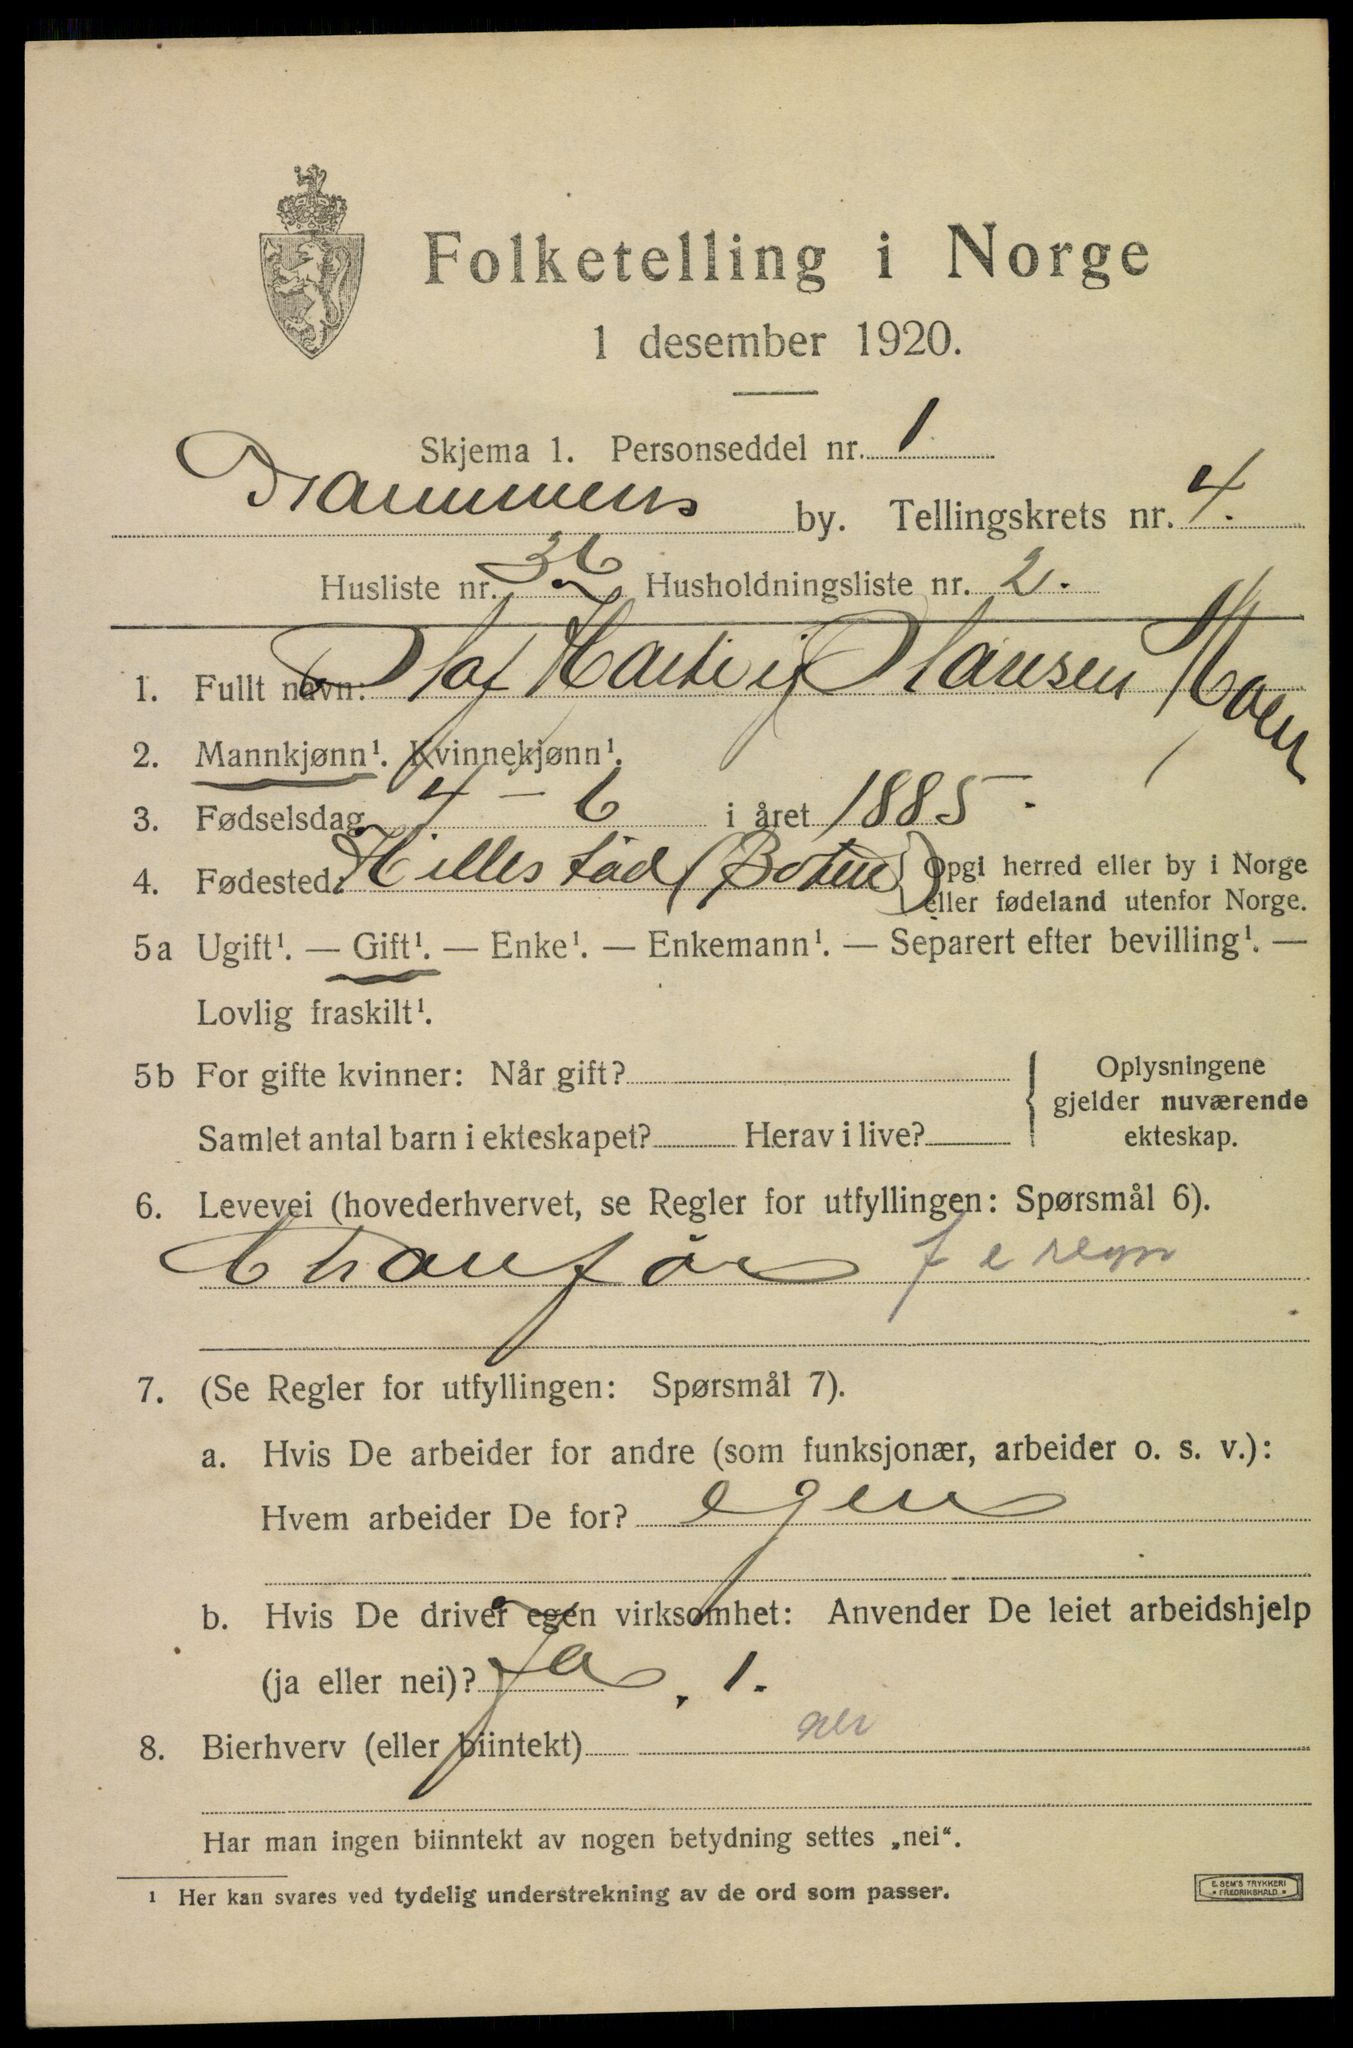 Folketelling i Norge
1 desember 1920.
Skjema 1. Personseddel nr. 1
Drammens by. Tellingskrets nr. 4.
Husliste nr. 36 Husholdningsliste nr. 2.
1. Fullt navn: Olaf Hartvig Hansen Moen
2. Mannkjønn¹. Kvinnekjønn¹.
3. Fødselsdag 4 - 6 i året 1885.
4. Fødested: Hillestad (Botne) Opgi herred eller by i Norge
eller fødeland utenfor Norge.
5a Ugift¹. — Gift¹. — Enke¹. — Enkemann¹. — Separert efter bevilling¹. —
Lovlig fraskilt¹.
5b For gifte kvinner: Når gift? Oplysningene
gjelder nuværende
Samlet antal barn i ekteskapet? Herav i live? ekteskap.
6. Levevei (hovederhvervet, se Regler for utfyllingen: Spørsmål 6).
Chauför f e regn
7. (Se Regler for utfyllingen: Spørsmål 7).
a. Hvis De arbeider for andre (som funksjonær, arbeider o. s. v.):
Hvem arbeider De for? egen
b. Hvis De driver egen virksomhet: Anvender De leiet arbeidshjelp
(ja eller nei)? Ja, 1.
8. Bierhverv (eller biintekt) nei
Har man ingen biinntekt av nogen betydning settes „nei“.
¹ Her kan svares ved tydelig understrekning av de ord som passer.
E. SEM'S TRYKKERI
FREDRIKSHALD